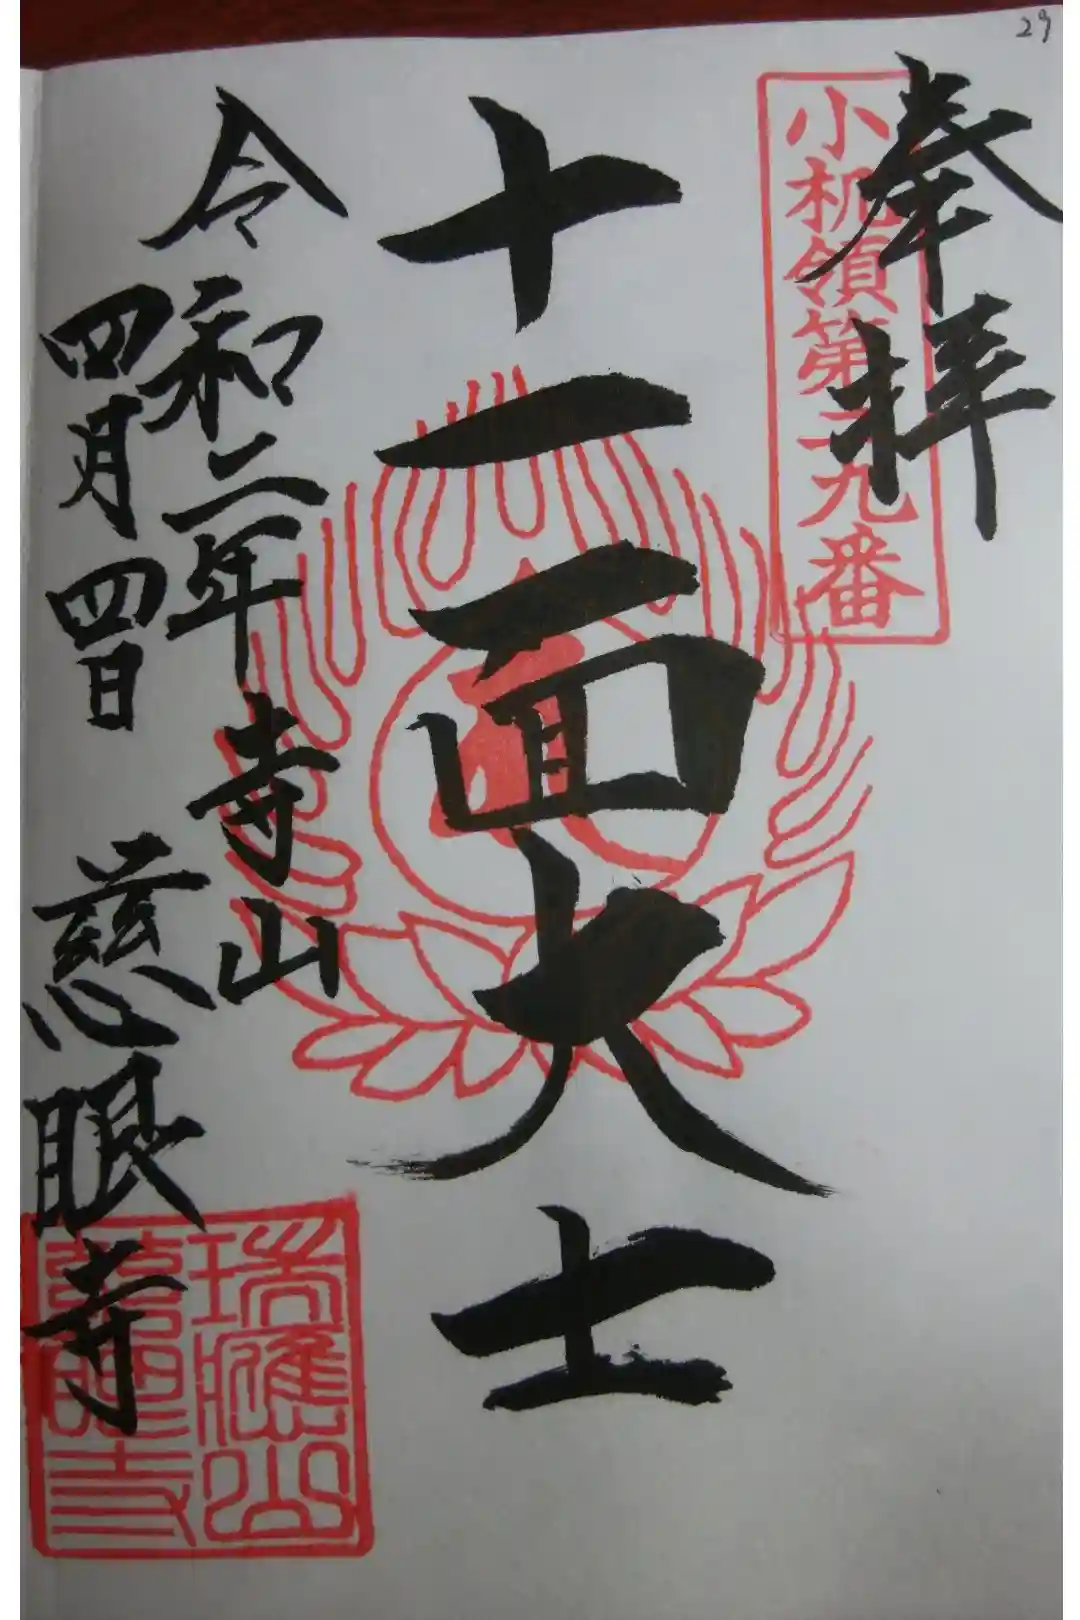 29
奉拝
小机領第二九番
十一面大士
令和二年
四月四日
寺山
慈眼寺
瑞應山